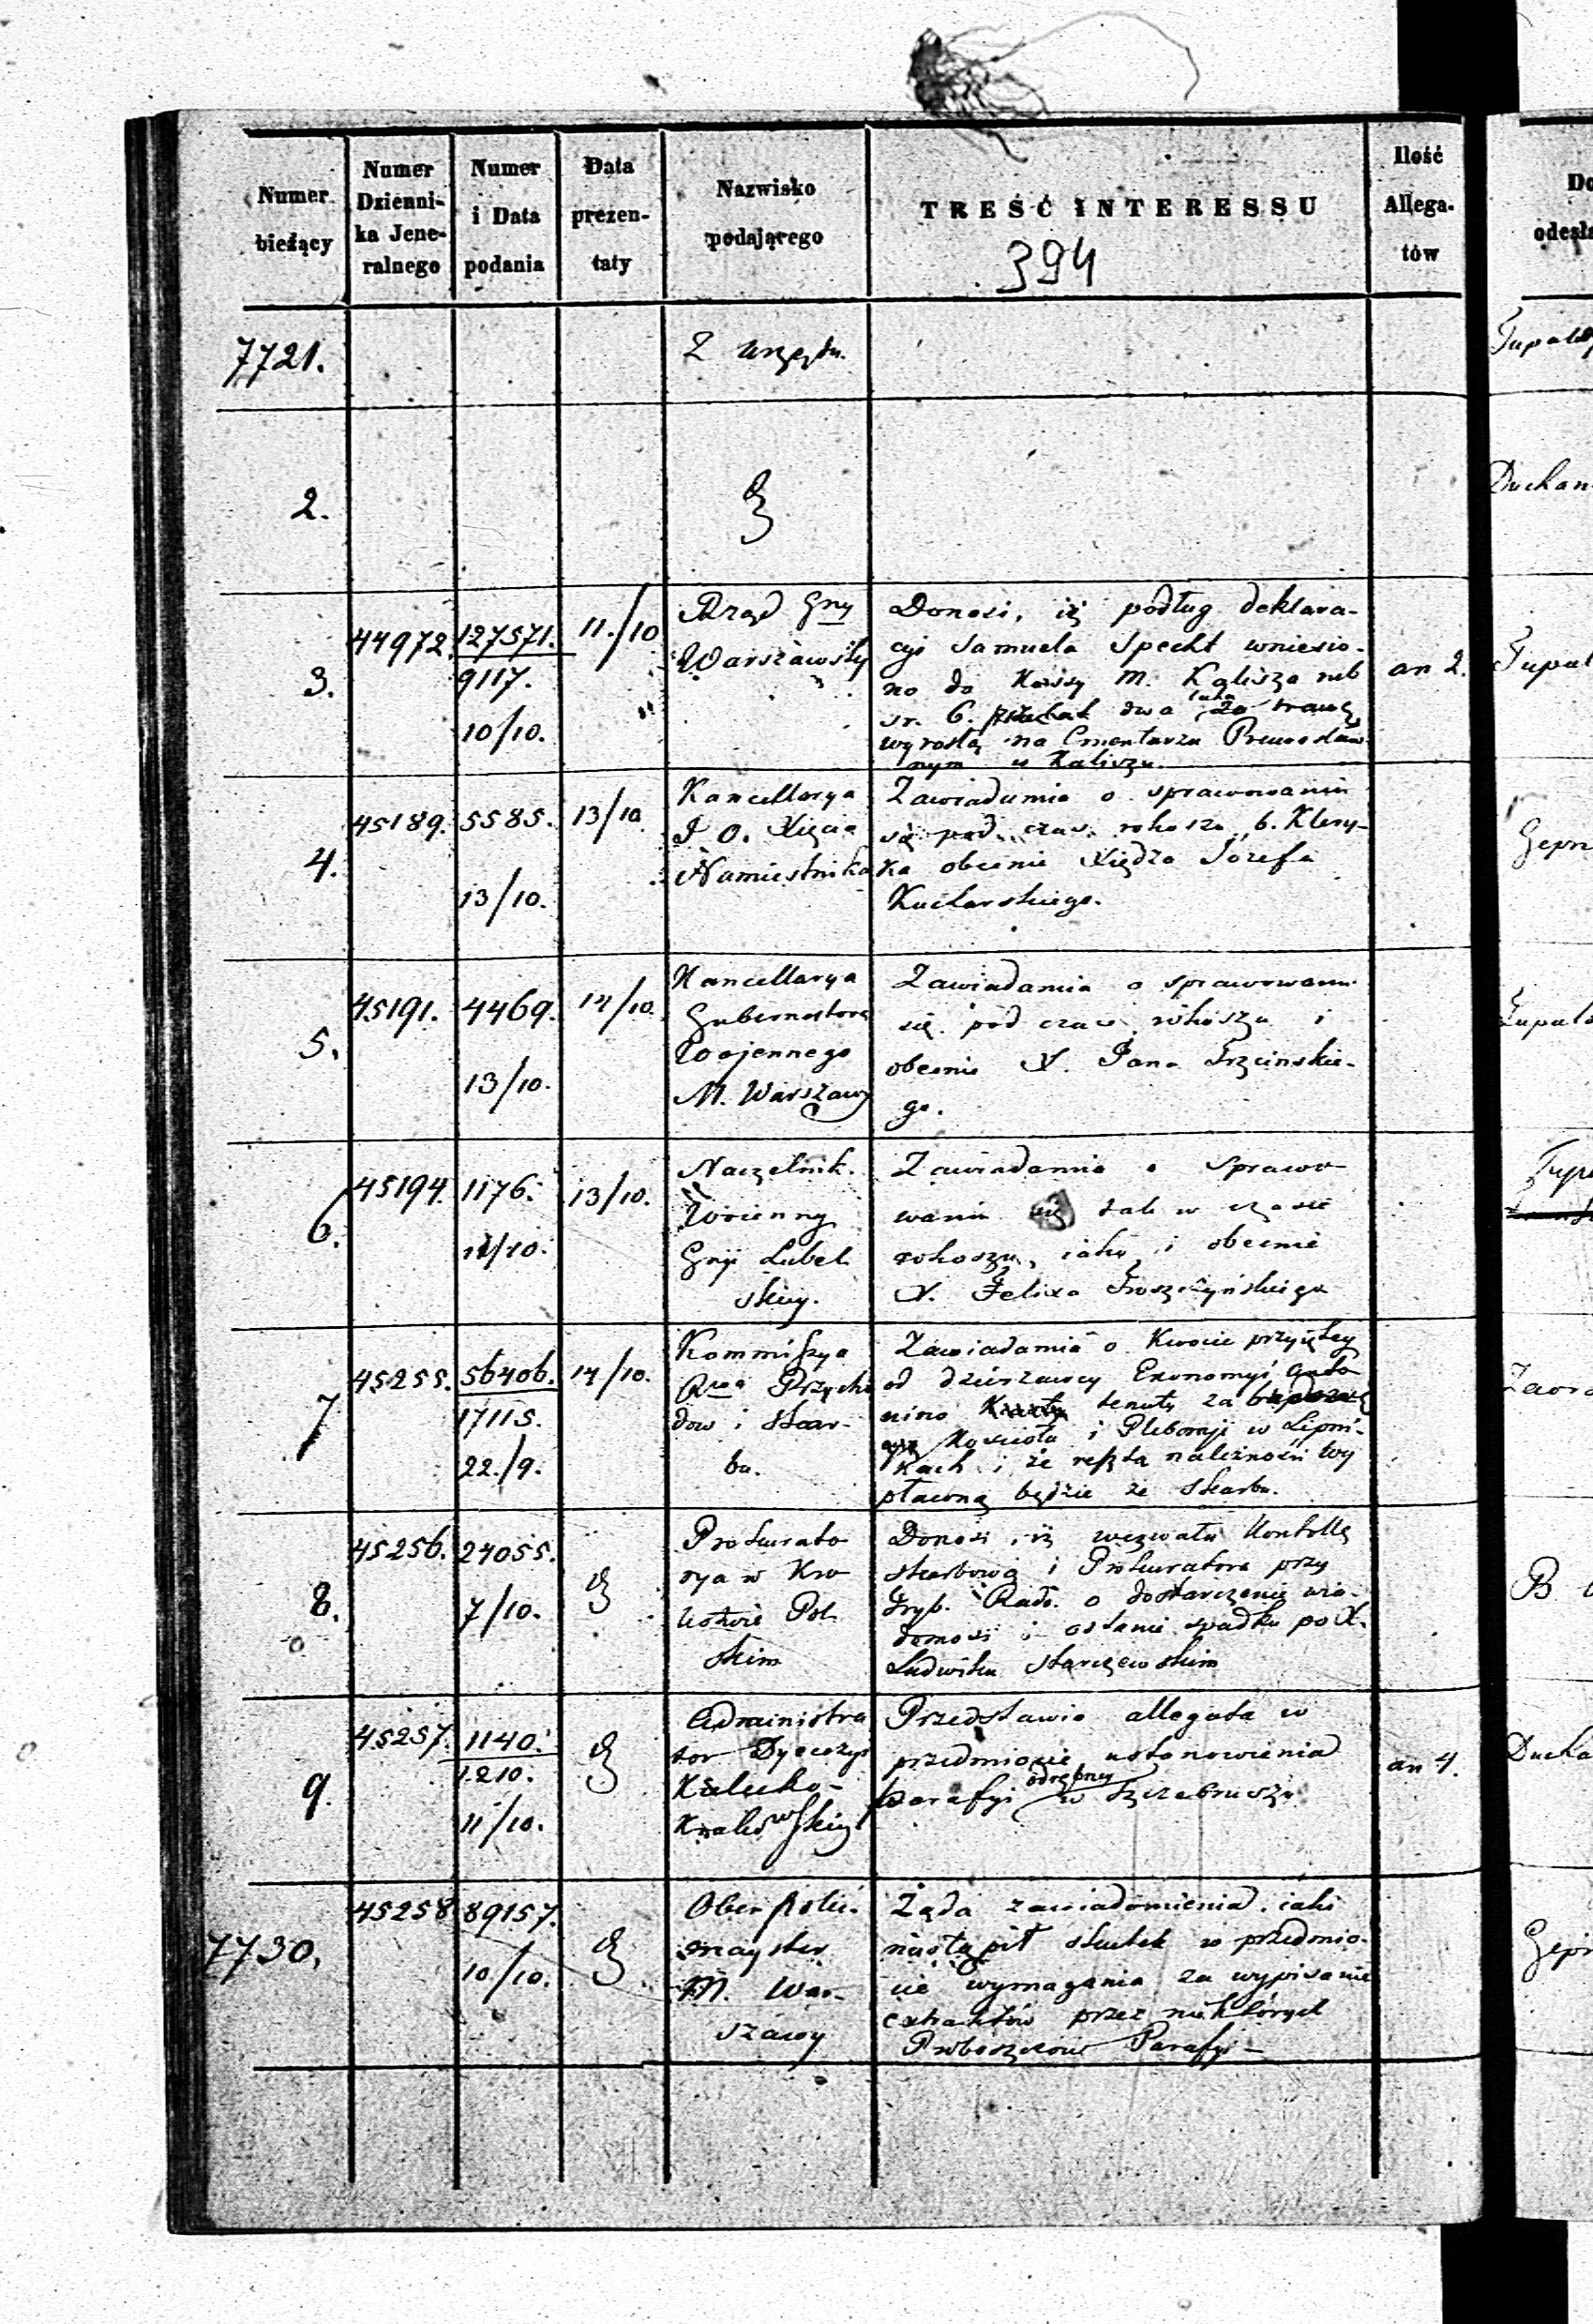 Numer bieżący
Numer Dzienni-ka Jene-ralnego
Numer i Data podania
Data prezen-taty
Nazwisko podającego
TREŚĆ INTERESSU
394
Ilość Allega-tów
7721.
Z urzędu.
2.
3.
44972.
127571.
9117.
10/10.
11./10
Rząd Gny
Warszawski
Donosi, iż podług deklara-
cyi Samuela Specht wniesio-
no do Kassy M. Kalisza rub
sr. 6. dwa za trawę
wyrosłą na Cmentarzu Prawosław-
nym w Kaliszu.
an 2.
4.
45189.
5585.
13/10.
13/10
Kancellarya
J O. Xięcia
Namiestnika
Zawiadamia o sprawowaniu
się pod czas rokoszu b. Klery-
ka obecnie Xiędza Józefa
Kucharskiego.
5.
45191.
4469.
13/10.
14/10.
Kancellarya
Gubernatora
Wojennego
M. Warszawy
Zawiadamia o sprawowaniu
się pod czas rokoszu i
obecnie X. Jana Trzcinskie-
go.
6.
45194.
1176.
11/10.
13/10.
Naczelnik
Woienny
Gnji Lubel
skiey.
Zawiadamia o sprawo-
waniu się tak w czasie
rokoszu, iako i obecnie
X. Felixa
7
45255.
56406.
17115.
22./9.
14/10.
Kommissya
Rwa Przycho
dow i Skar-
bu.
Zawiadamia o Kwocie przyjętey
od dzierzawcy Ekonomyi
nino tenuty za
Kościoła i Plebanji w Lipni-
kach i że reszta należności wy
płaconą będzie ze Skarbu.
8.
45256.
24055.
7/10.
Prokurato
rya w Kró
lestwie Pol
skim
Donosi, iż wezwała Kontrollę
skarbową i Prokuratora przy
Tryb. Rado. o dostarczenie wia-
domości o stanie spadku po X.
Ludwiku Starczewskim
9.
45257.
1140.
1210.
11/10.
Administra
tor Dyecezyi
Kielecko-
Krakowskiey
Przedstawia allegata w
przedmiocie ustanowienia
parafyi odrębney w Szczebruszu
an 4.
7730.
45258
89157.
10/10.
Ober Polic-
mayster
M. War-
szawy
Żąda zawiadomienia, iaki
nastąpił skutek w przedmio-
cie wymagania za wypisanie
extraktów przez niektórych
Proboszczów Parafyi-